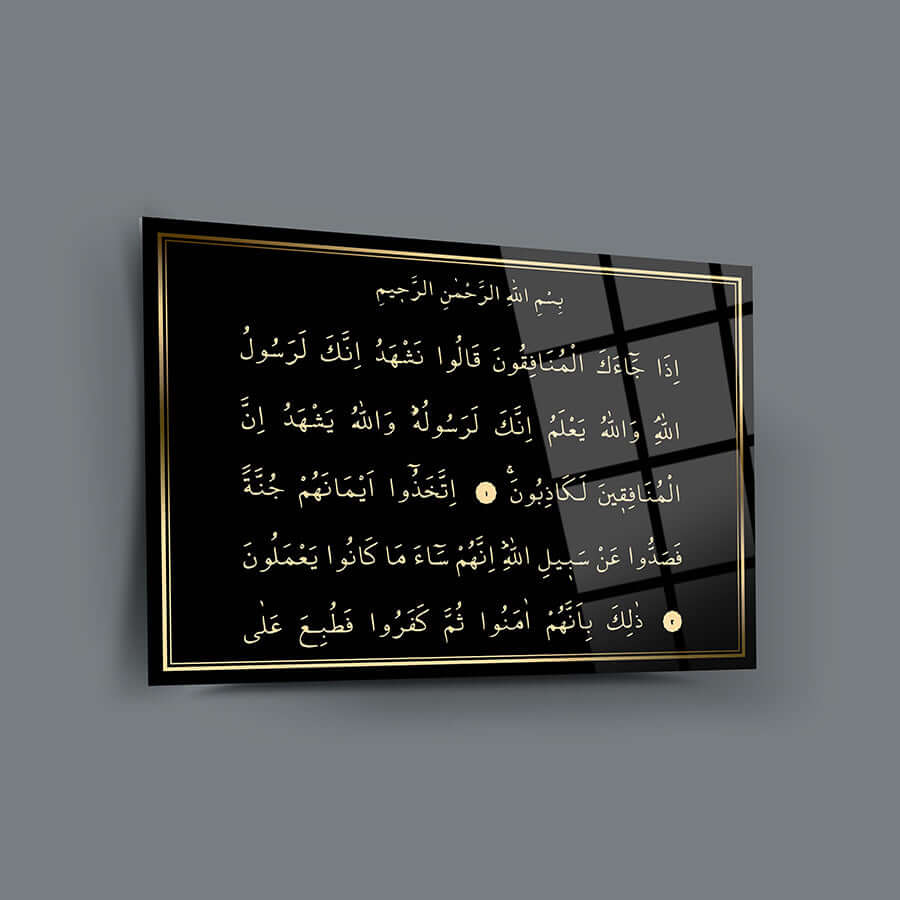 بِسْمِ اللّٰهِ الرَّحْمٰنِ الرَّحٖيمِ
اِذَا جَٓاءَكَ الْمُنَافِقُونَ قَالُوا نَشْهَدُ اِنَّكَ لَرَسُولُ
اللّٰهِۢ وَاللّٰهُ يَعْلَمُ اِنَّكَ لَرَسُولُهُؕ وَاللّٰهُ يَشْهَدُ اِنَّ
الْمُنَافِقٖينَ لَكَاذِبُونَۚ ١ اِتَّخَذُٓوا اَيْمَانَهُمْ جُنَّةً
فَصَدُّوا عَنْ سَبٖيلِ اللّٰهِؕ اِنَّهُمْ سَٓاءَ مَا كَانُوا يَعْمَلُونَ
٢ ذٰلِكَ بِاَنَّهُمْ اٰمَنُوا ثُمَّ كَفَرُوا فَطُبِعَ عَلٰى